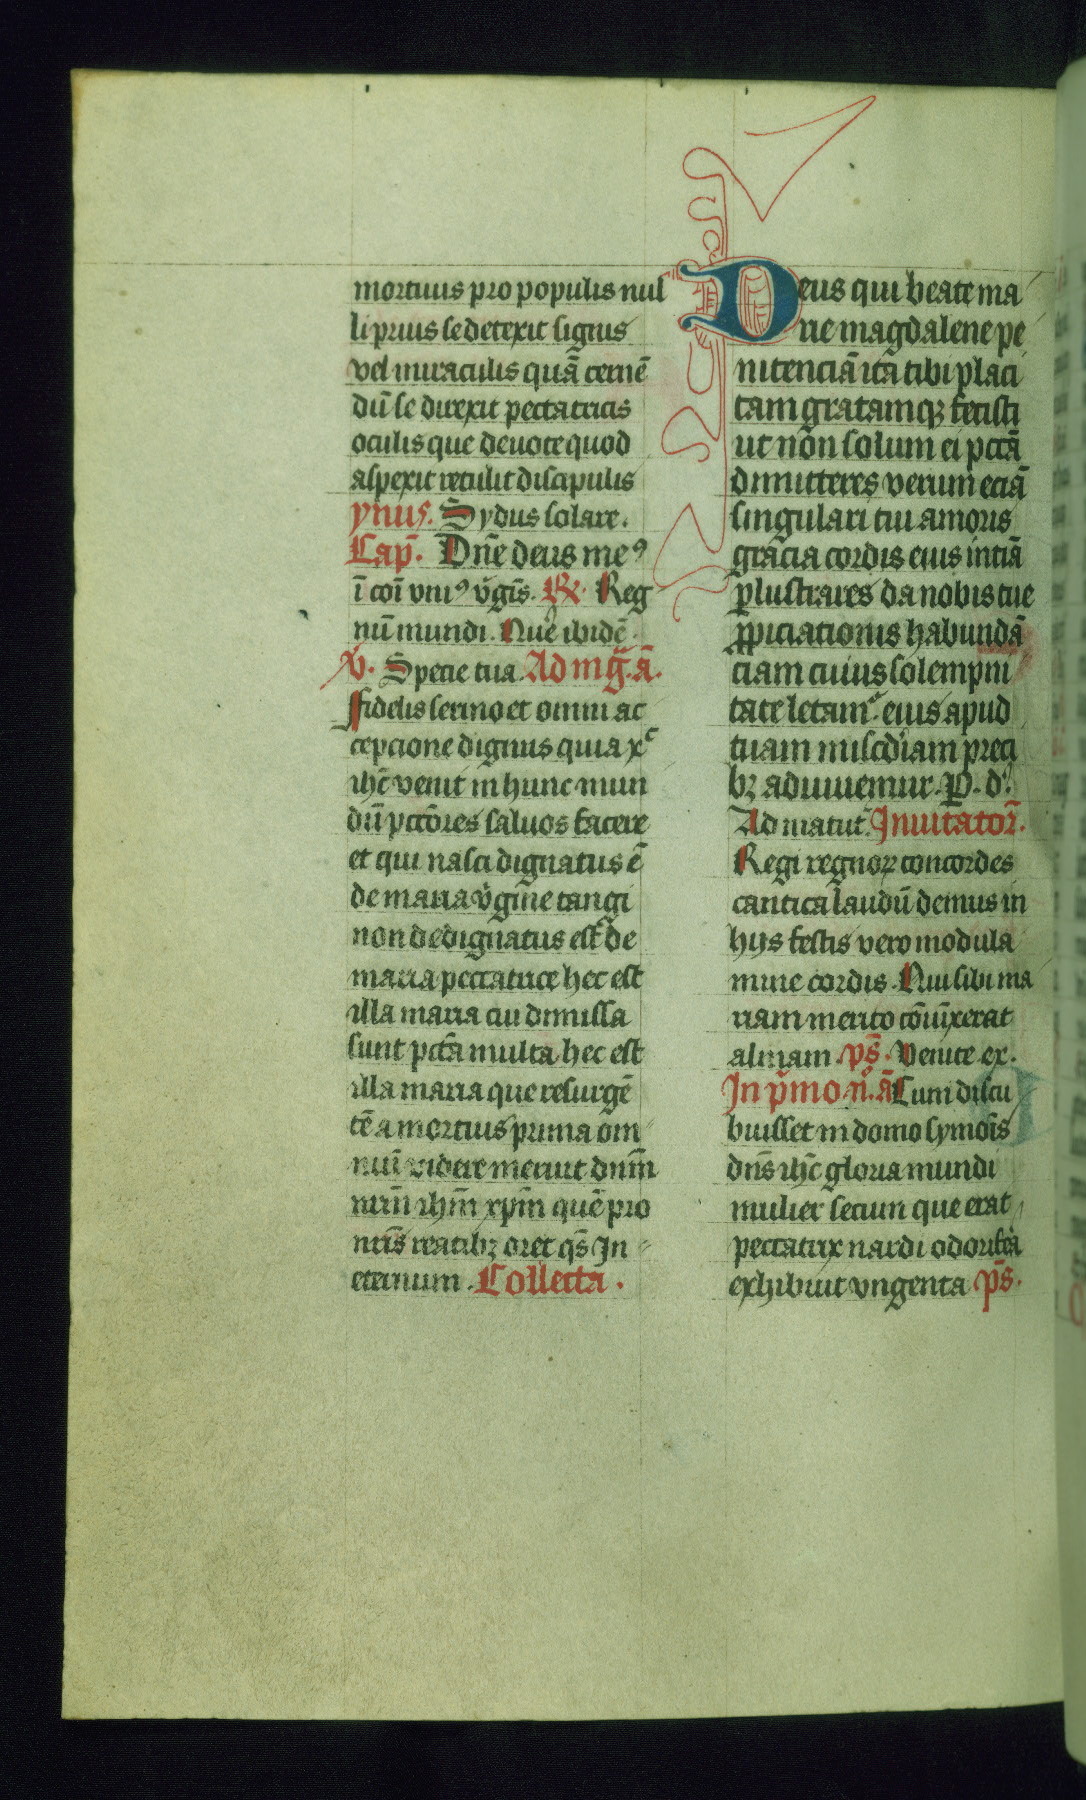 mortuus pro populis nul
li prius se detexit signis
vel miraculis quā cernē
dū se direxit peccatricis
oculis que deuote quod
aspexit retulit discipulis
ynus. Sydus solare.
Cap̄. Dn̄e deus meꝰ
ī coī vniꝰ v̄gīs. ℟. Reg
nū mundi. Que ibidē.
℣. Specie tua. Ad mḡ. ā.
Fidelis sermo et omni ac
cepcione dignus quia xᶜ
ih̄c venit in hunc mun
dū pctōres saluos facere
et qui nasci dignatus ē
de maria v̄gine tangi
non dedignatus est a de
maria peccatrice hec est
illa maria cui dimissa
sunt pctā multa hec est
illa maria que resurgē
tē a mortuis prima om
niū videre meruit dnm̄
nrm̄ ih̄m xp̄m quē pro
nrīs reatibꝫ oret qs̄ In
eternum. Collecta.
Deus qui beate ma
rie magdalene pe
nitenciā ita tibi placi
tam gratamqꝫ fecisti
ut nōn solum ei pctā
dimitteres verum eciā
singulari tui amoris
gracia cordis eius intiā
ꝑlustrares da nobis tue
ꝓpiciacionis habundā
ciam cuius solempni
tate letamᷣ. eius apud
tuam miscdiam preci
bꝫ adiuuemur. P. dᷣ.
Ad matut̄. Inuitatoꝝ̄.
Regi regnoꝝ concordes
cantica laudū demus in
hys festis vero modula
mine cordis. Qui sibi ma
riam merito cōiūxerat
almam. ps̄. Venite ex.
In pͥmo n̄o. ā Cum discu
buisset in domo symoīs
dn̄s ih̄c gloria mundi
mulier secum que erat
peccatrix nardi odoriferā
exhibuit vngenta. ps̄.